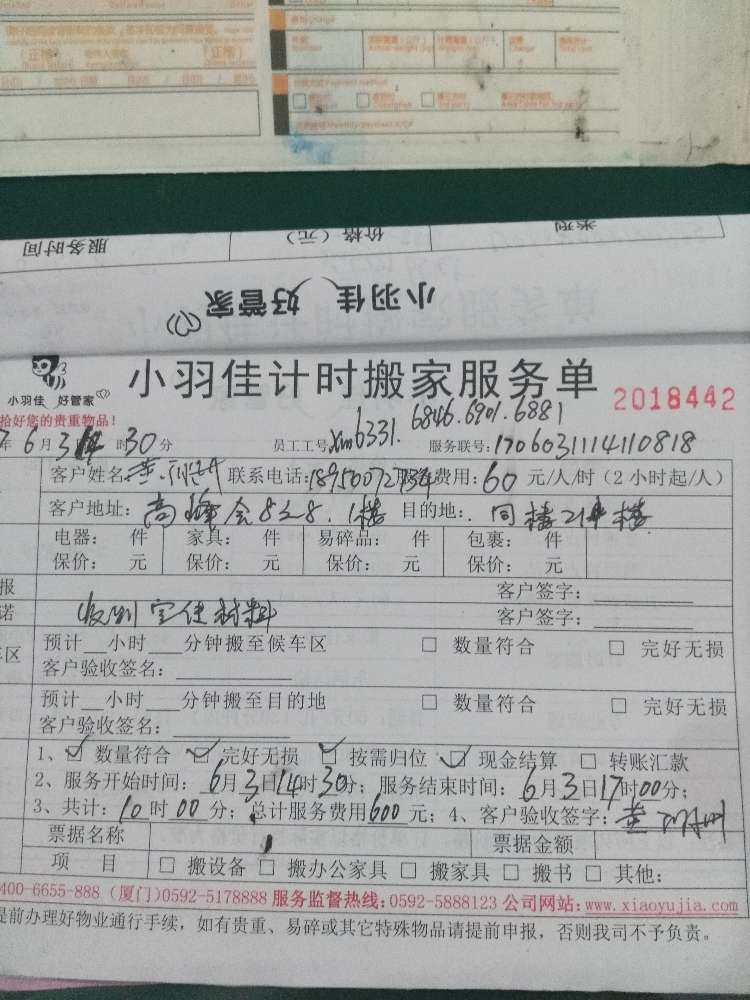 服务时间 价格（元） 类别
小羽佳 好管家
小羽佳 好管家
小羽佳计时搬家服务单
2018442
拾好您的贵重物品！
6331. 6846. 6901. 6881
年6月3日14时30分 员工工号: 服务联号: 1706031114110818
客户姓名: 联系电话: 服务费用: 60 元/人/时（2小时起/人）
客户地址: 1楼 目的地: 同楼21楼
电器: 件 家具: 件 易碎品: 件 包裹: 件
保价: 元 保价: 元 保价: 元 保价: 元
报 客户签字:
诺 收到宝佳材料 客户签字:
车区 预计__小时__分钟搬至候车区 □ 数量符合 □ 完好无损
客户验收签名:
预计__小时__分钟搬至目的地 □ 数量符合 □ 完好无损
客户验收签名:
1、☑ 数量符合 ☑ 完好无损 ☑ 按需归位 ☑ 现金结算 □ 转账汇款
2、服务开始时间: 6月3日14时30分; 服务结束时间: 6月3日17时00分;
3、共计: 10时00分; 总计服务费用600元; 4、客户验收签字:
票据名称 票据金额
项 目 □ 搬设备 □ 搬办公家具 □ 搬家具 □ 搬书 □ 其他:
400-6655-888 (厦门)0592-5178888 服务监督热线:0592-5888123 公司网站:www.xiaoyujia.com
提前办理好物业通行手续，如有贵重、易碎或其它特殊物品请提前申报，否则我司不予负责。